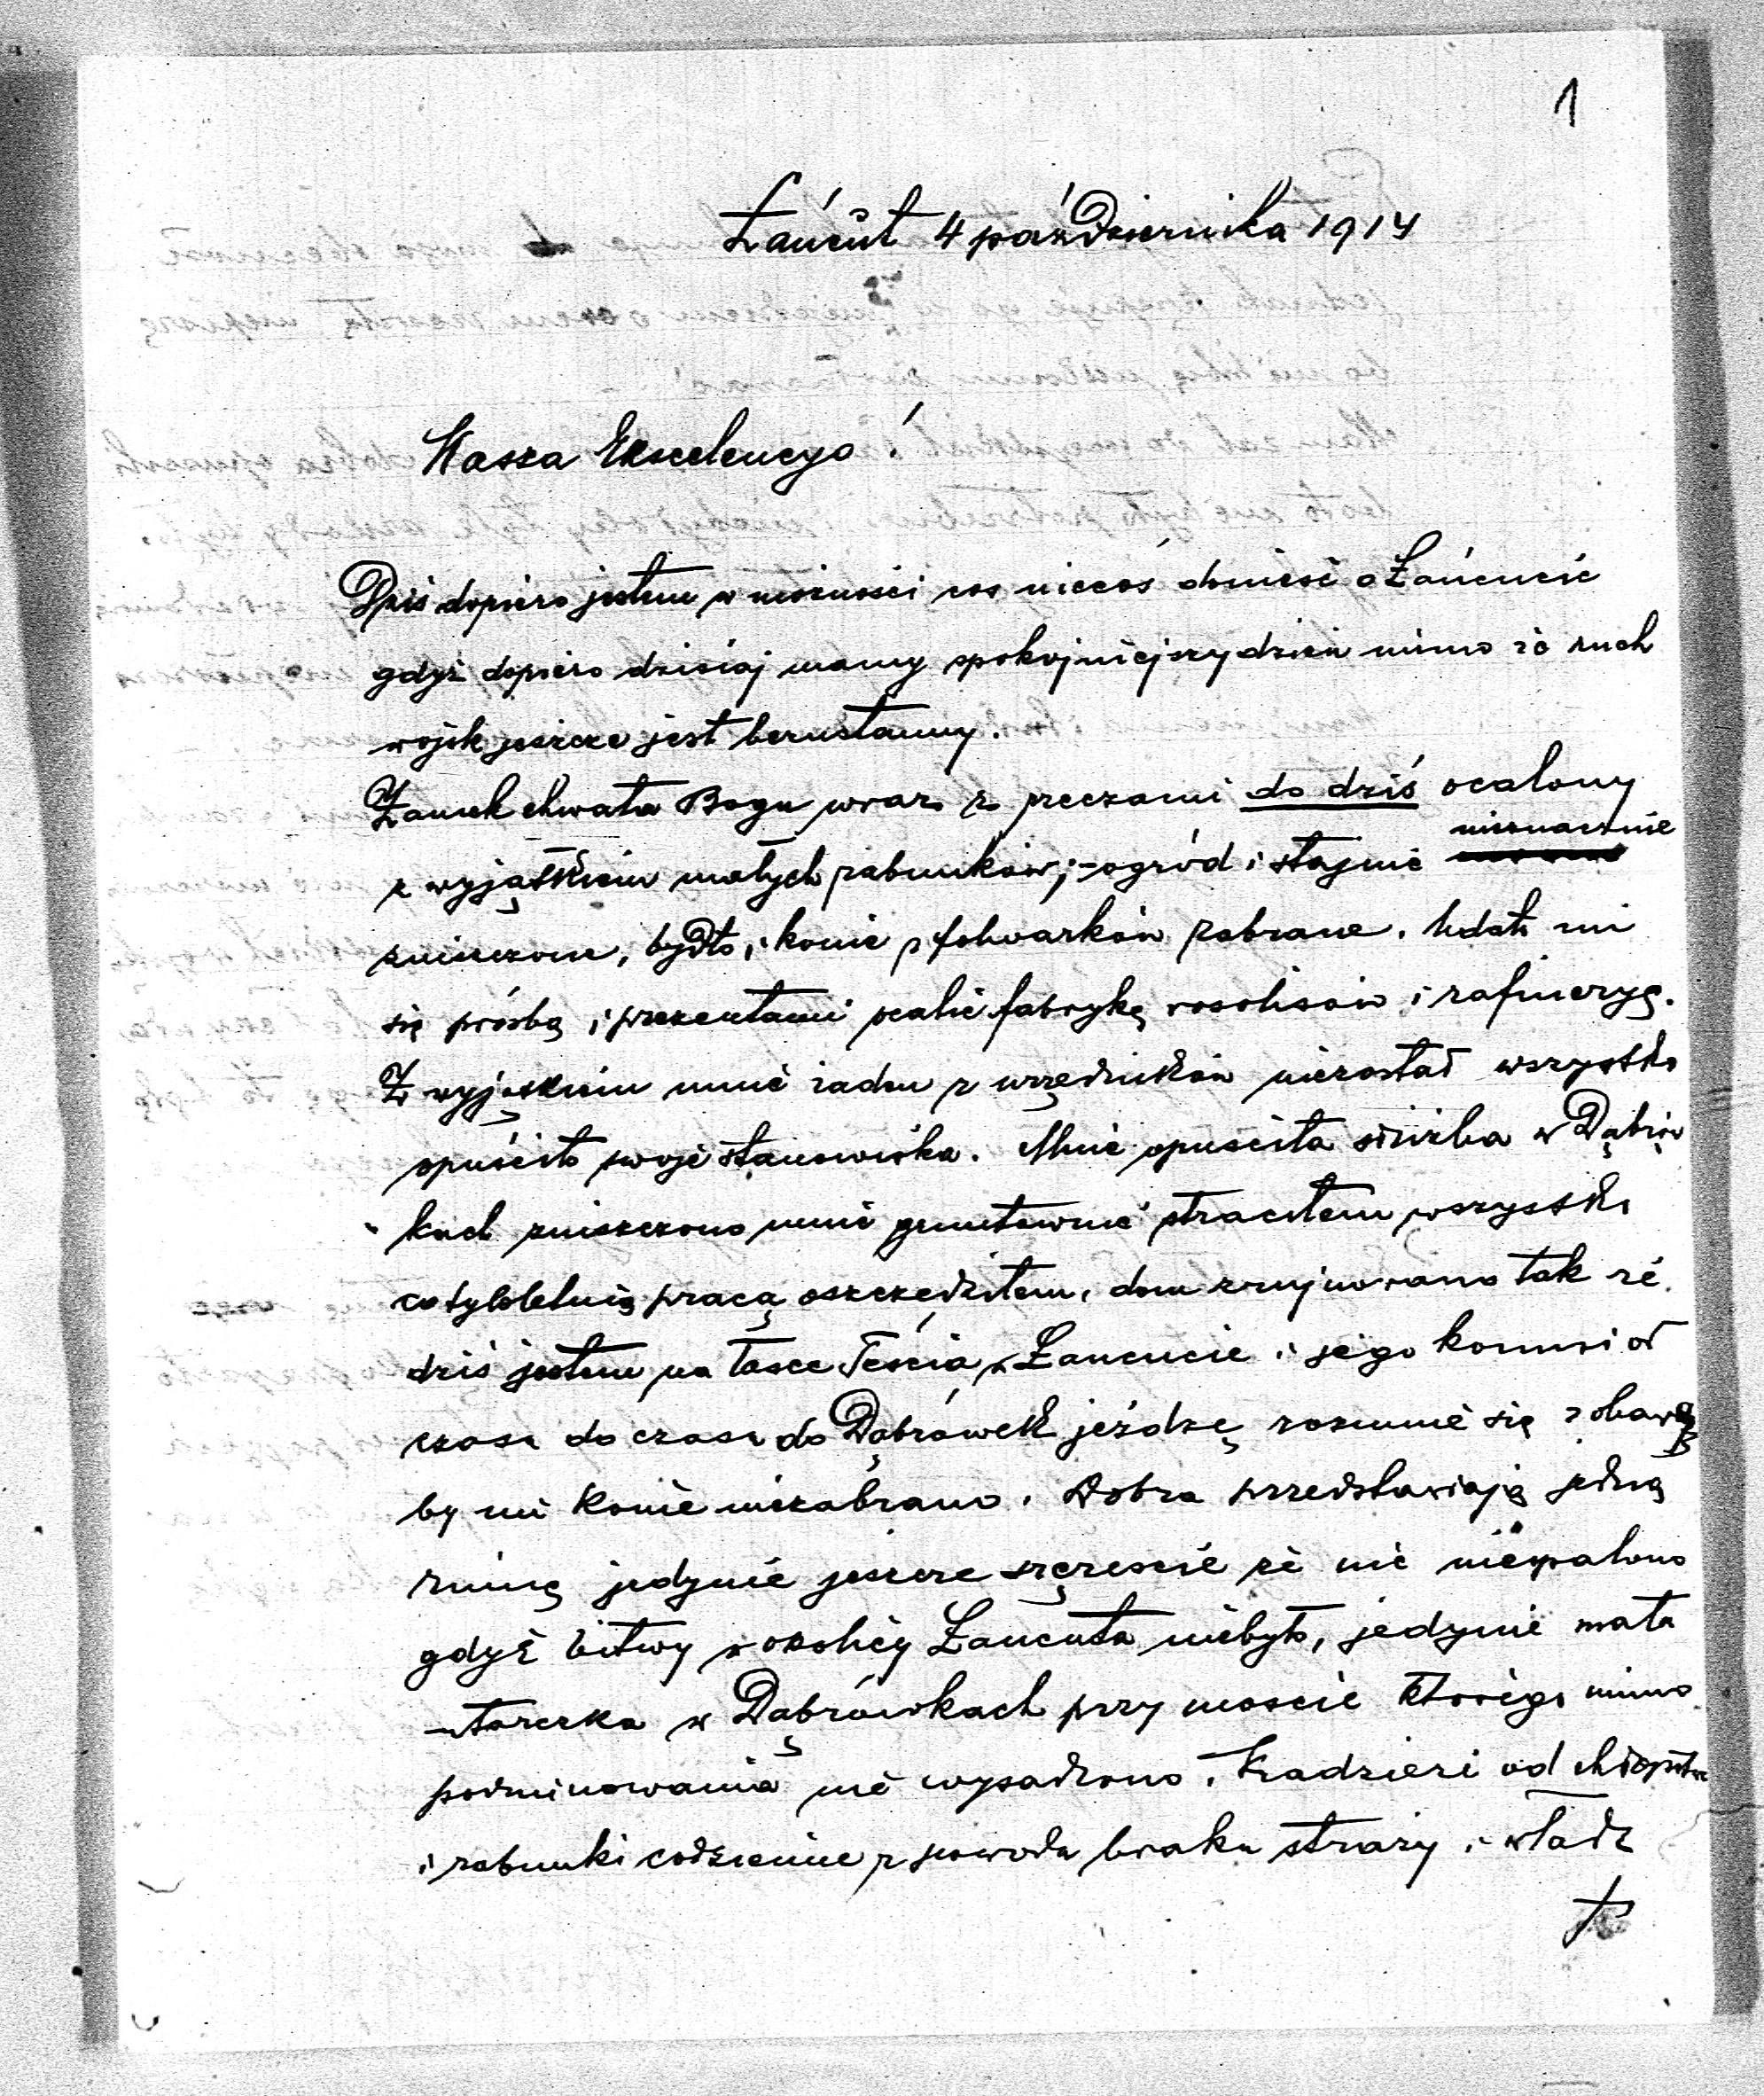 1
Łańcut 4 października 1914
Wasza Ekscelencyo!
Dziś dopiero jestem w możności coś niecoś donieść o Łańcucie
gdyż dopiero dzisiaj mamy spokojniejszy dzień mimo że ruch
wojsk jeszcze jest bezustanny.
Zamek chwała Bogu wraz z rzeczami do dziś ocalony
z wyjątkiem małych rabunków; - ogród i stajnie nieznacznie
zniszczone, bydło i konie z folwarków zabrane. Udało mi
się prośbą i prezentami ocalić fabrykę rosolisów i rafineryę.
Z wyjątkiem mnie żaden z urzędników niezostał wszystko
opuściło swoje stanowiska. Mnie opuściła służba w Dąbrów
kach zniszczono mnie gruntownie straciłem wszystko
co tyloletnią pracą oszczędziłem, dom zrujnowano tak że
dziś jestem na łasce Teścia w Łancucie i jego końmi od
czasu do czasu do Dąbrówek jeżdżę rozumie się z obawą
by mi konie niezabrano. Dobra przedstawiają jedną
ruinę jedynie jeszcze szczęście że nic niespalono
gdyż bitwy w okolicy Łancuta niebyło, jedynie mała
utarczka w Dąbrówkach przy moście którego mimo
podminowania nie wysadzono. Kradzieri od chłopstwa
i rabunki codziennie z powodu braku straży i władz